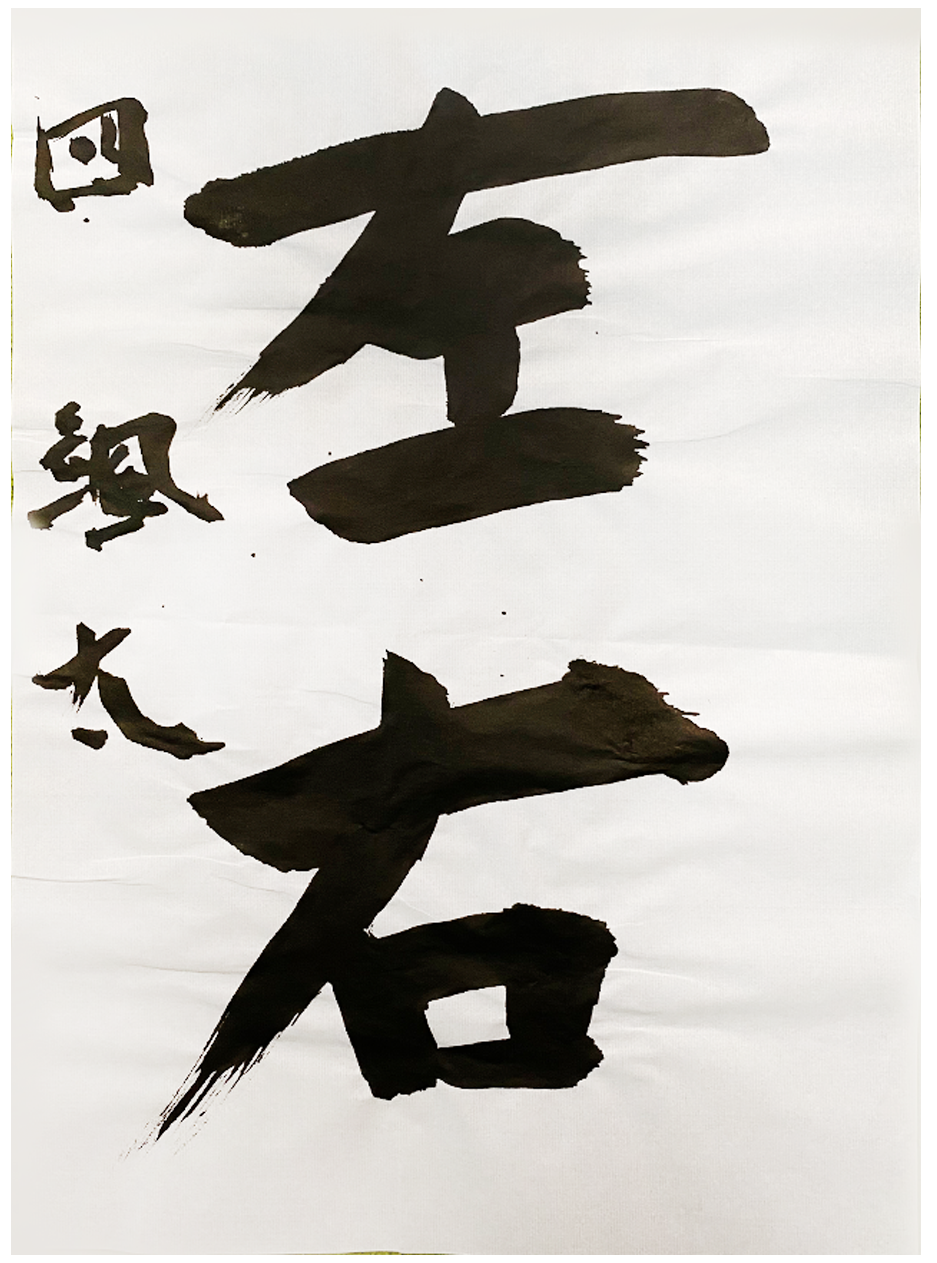 左右
颯太